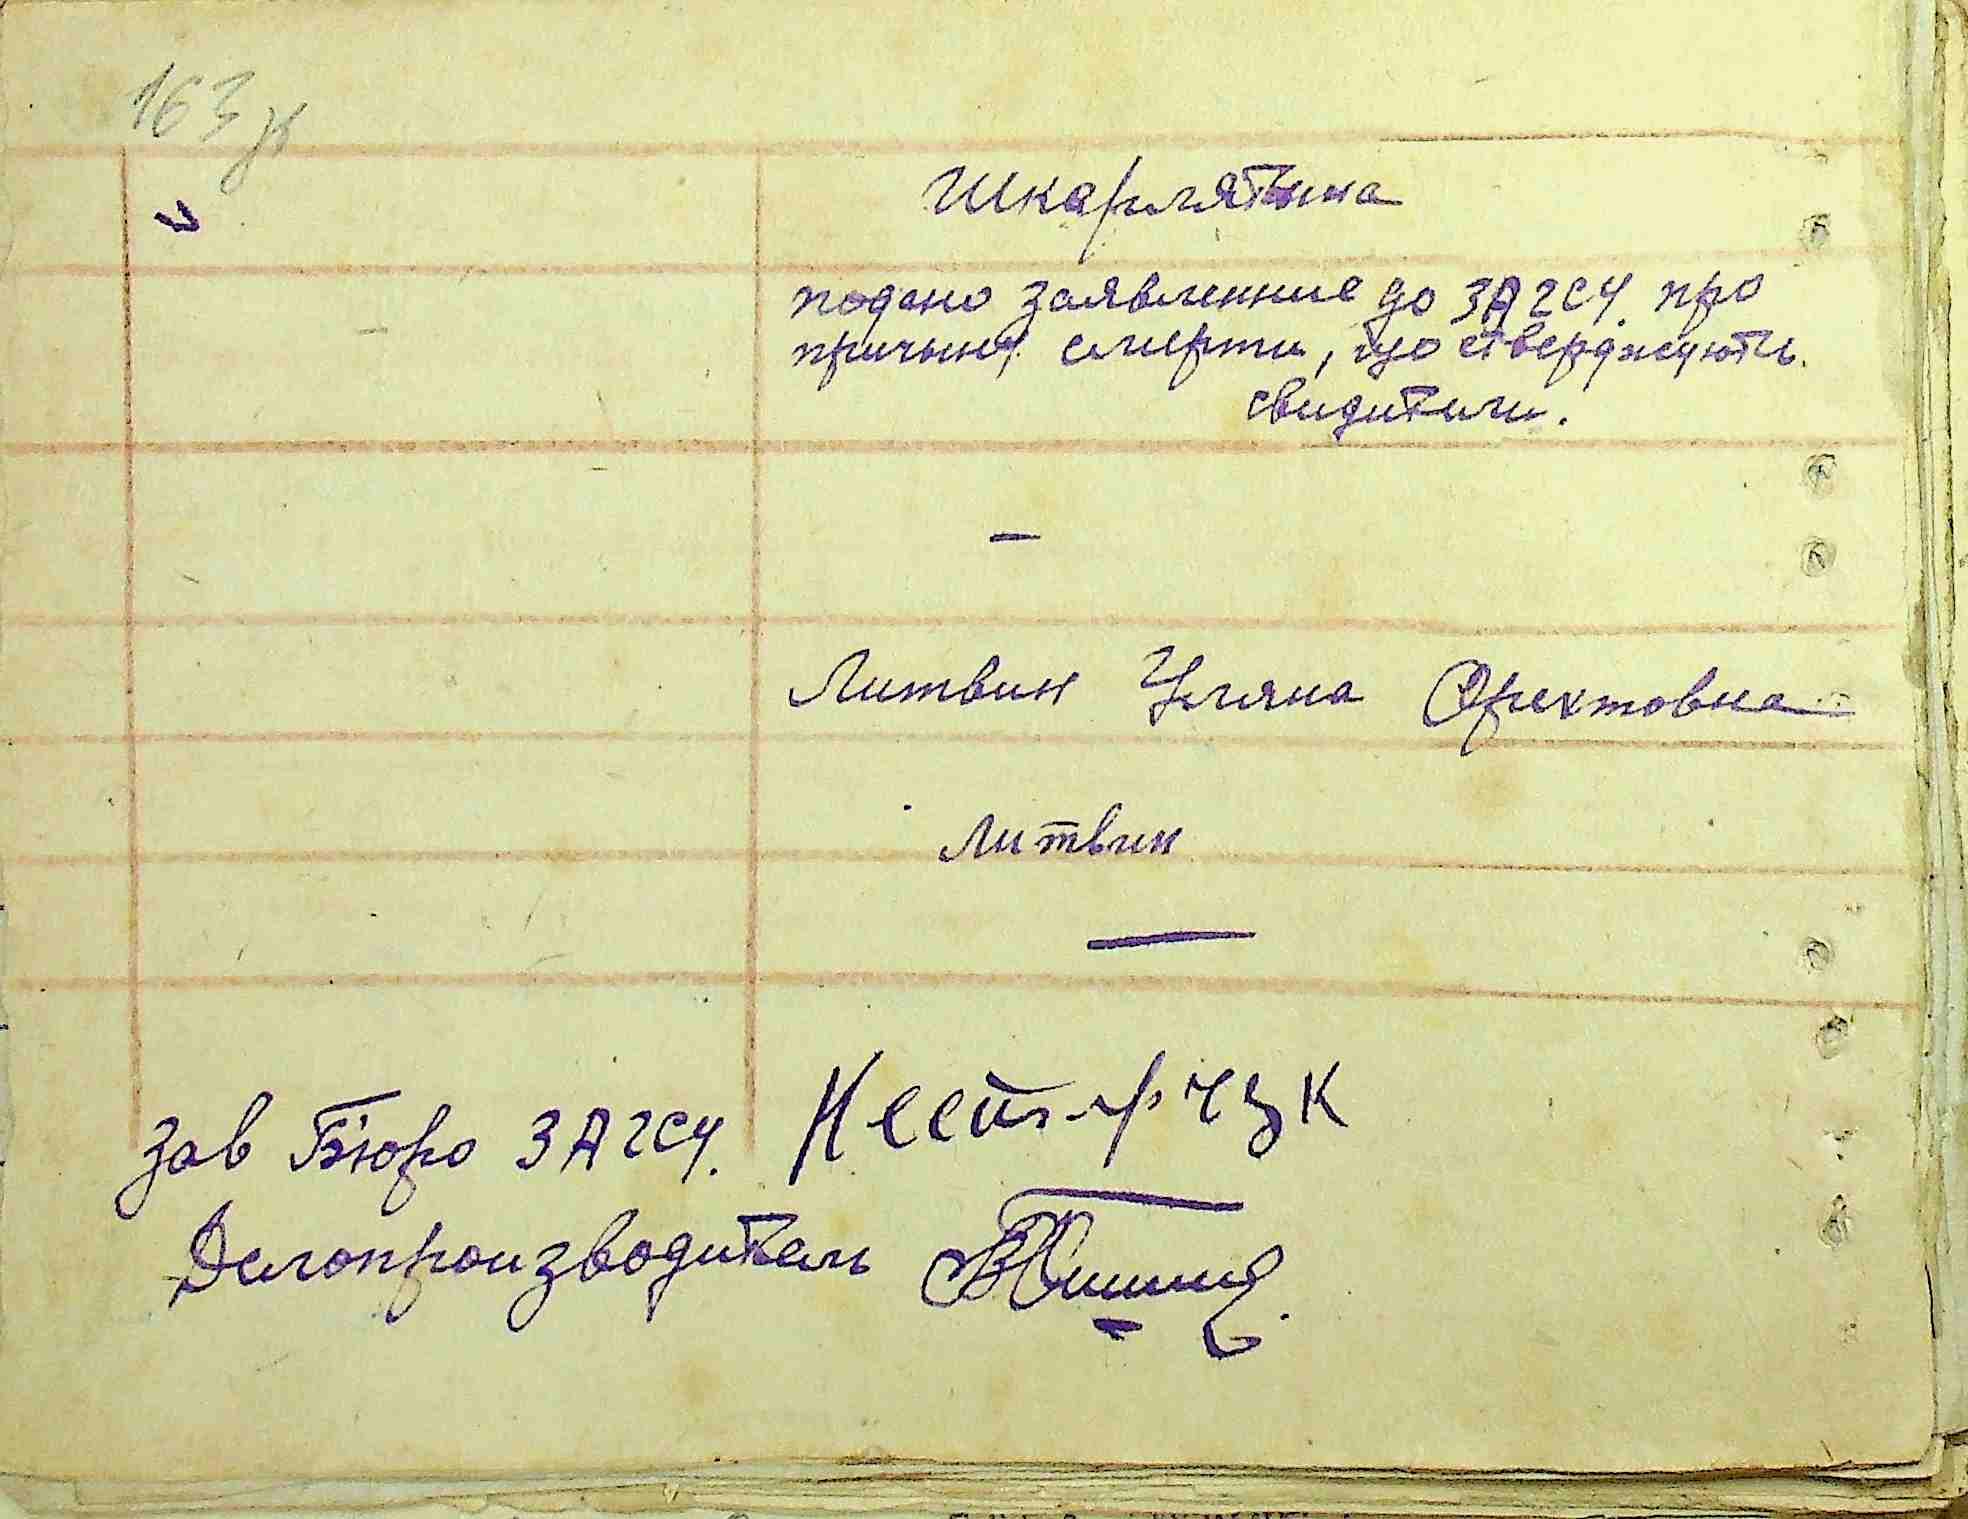 163
Шкарлятына
подано заявленние до ЗАГСУ. про
причыну смерти, що стверджують.
свидители.
—
Литвин Уляна Орехтовна
Литвин
—
зав Б'юро ЗАГСУ. Нестерчук
Делопроизводитель